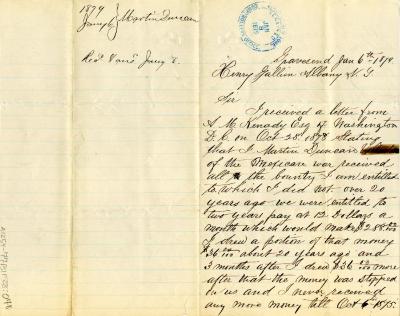 1879
Jany 6 Martin Duncan
Recd Paris Jany 8.
Gravesend Jan 6th 1879.
Henry Gallien Albany N. Y.
Sir
I received a letter from
A. M. Kenady Esq of Washington
D. C. on Oct 28. 1878 Stating
that I Martin Duncan
of the Mexican war received
all the bounty I am entitled
to which I did not. over 20
years ago we were entitled to
two years pay at 12 Dollars a
month which would make $288.00
I drew a portion of that money
$36.00 about 20 years ago and
3 months after I drew $36.00 more
after that the money was stopped
on us and I never received
any more money till Oct